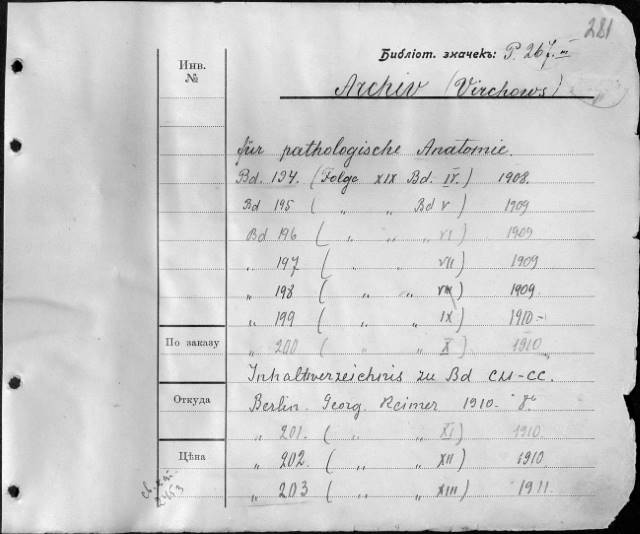 281
Библіот. значекъ: P. 267. III
Инв.
№
Archiv (Virchows)
für pathologische Anatomie.
Bd. 194. (Folge XIX Bd. IV.) 1908.
Bd 195 ( „ „ Bd V ) 1909
Bd 196 ( „ „ „ VI ) 1909
„ 197 ( „ „ VII ) 1909
„ 198 ( „ „ „ VIII ) 1909.
„ 199 ( „ „ „ IX ) 1910-
По заказу
„ 200 ( „ „ X ) 1910
Inhaltverzeichnis zu Bd CLI-CC.
Откуда
Berlin. Georg. Reimer 1910. 8°
„ 201. ( „ „ XI ) 1910.
Цѣна
„ 202. ( „ „ XII ) 1910
„ 203 ( „ „ XIII ) 1911.
2453